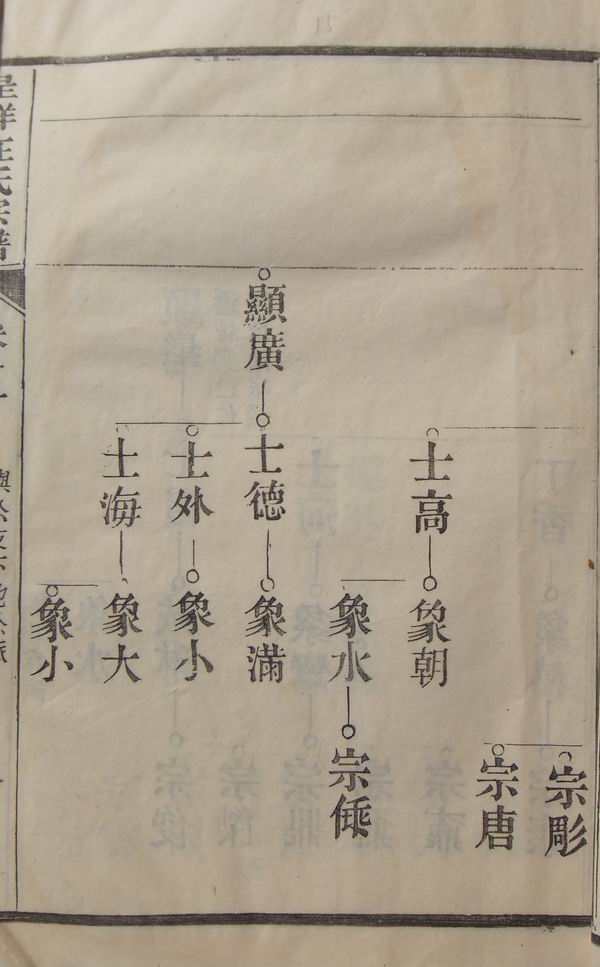 15
宗彫
宗唐
士高
象朝
象水
宗
顯廣
士德
象滿
士外
象小
士海
象大
象小
汪氏宗譜